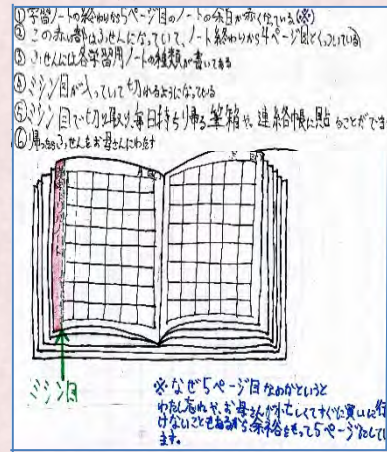 ①学習ノートの終わりから5ページ目のノートの余白が赤くなっている(※)
②この赤い部はふせんになっていて、ノート終わりから4ページ目とくっついている
③ふせんには各学習用ノートの種類が書いてある
④ミシン目が入っていて切れるようになっている
⑤ミシン目で切り取り毎日持ち帰る筆箱や、連絡帳に貼ることができ
⑥帰ったらふせんをお母さんにわたす
ミシン目
※なぜ5ページ目なのかというと
わたし忘れや、お母さんが忙しくてすぐに買いに行
けないこともあるから余裕をもって5ページにしてい
ます。